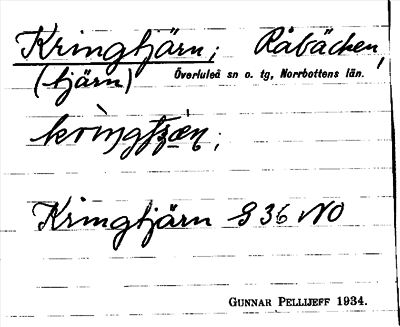 Kringtjärn; Råbäcken,
(tjärn) Överluleå sn o. tg, Norrbottens län.
Kringtjärn S 36 NO
GUNNAR PELLIJEFF 1934.